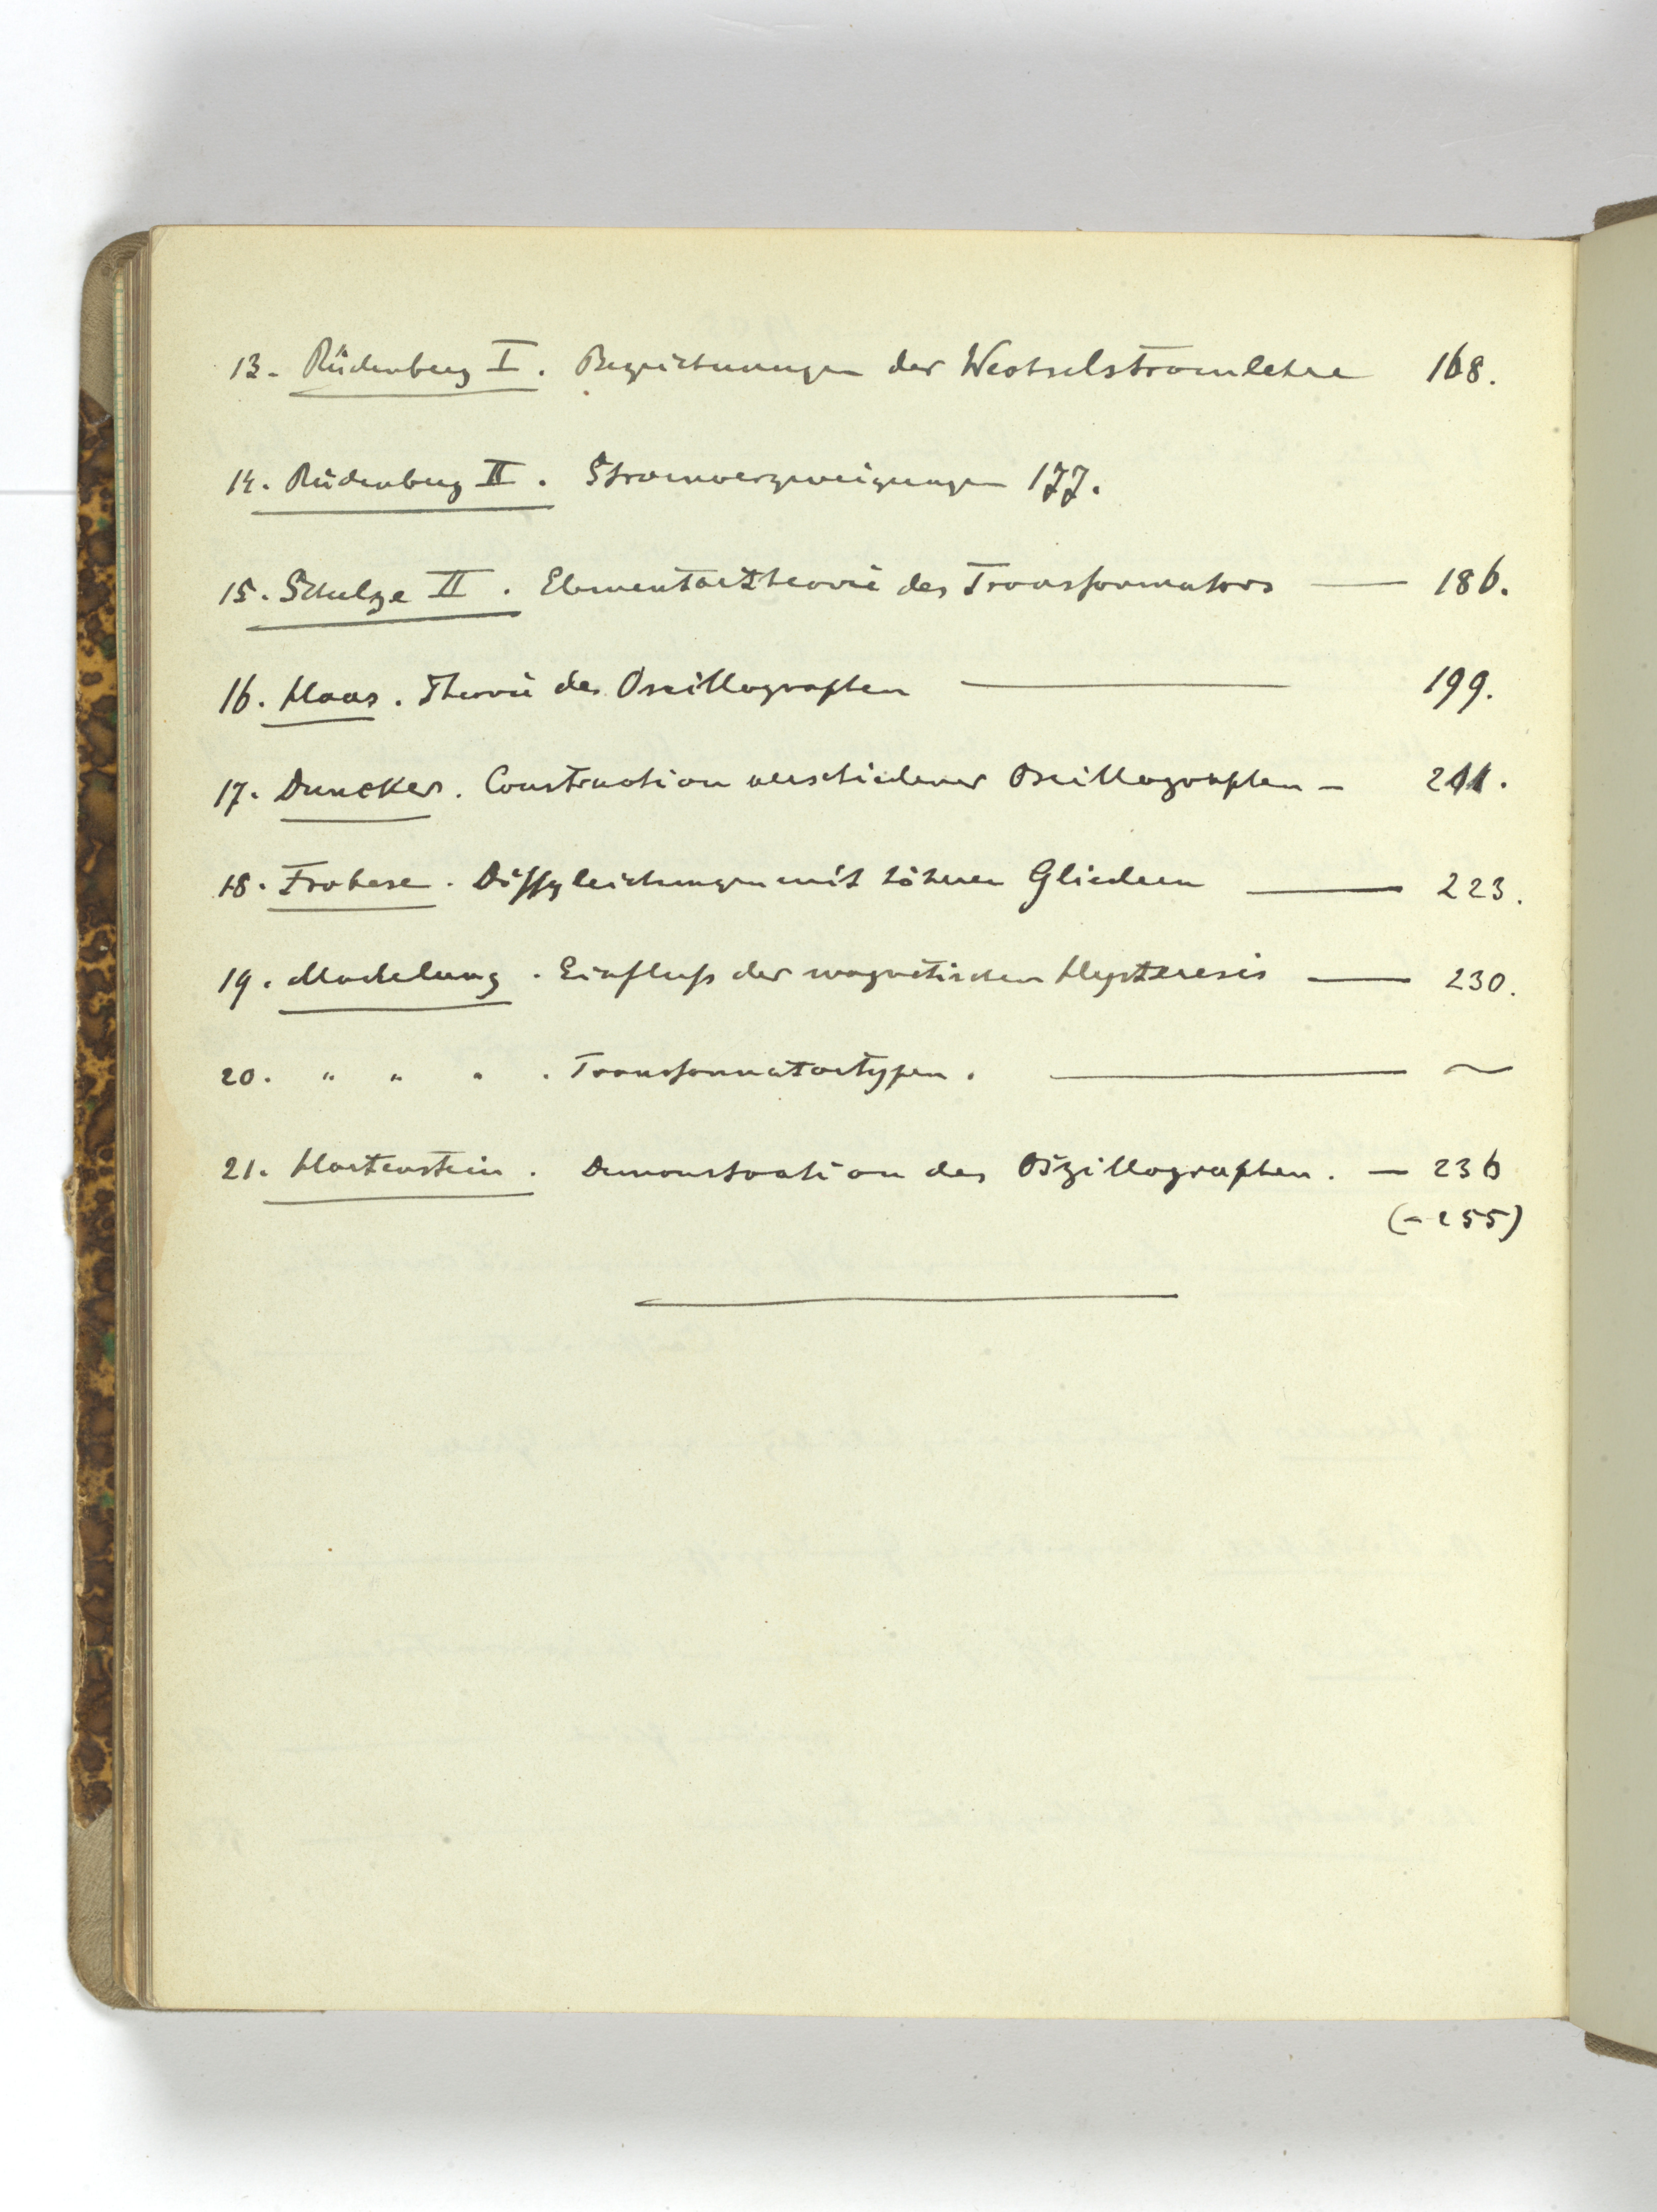 13. Rüdenberg I. Bezeichnungen der Wechselstromlehre 168.
14. Rüdenberg II. Stromverzweigungen 177.
15. Schulze II. Elementartheorie des Transformators — 186.
16. Haas. Theorie des Oscillographen — 199.
17. Duncker. Construction verschiedener Oscillographen — 211.
18. Frobese. Diffgleichungen mit höheren Gliedern — 223.
19. Madelung. Einfluß der magnetischen Hysteresis — 230.
20. " " " . Transformatortypen. — ~
21. Hartenstein. Demonstration des Oszillographen. — 236
(- 255)